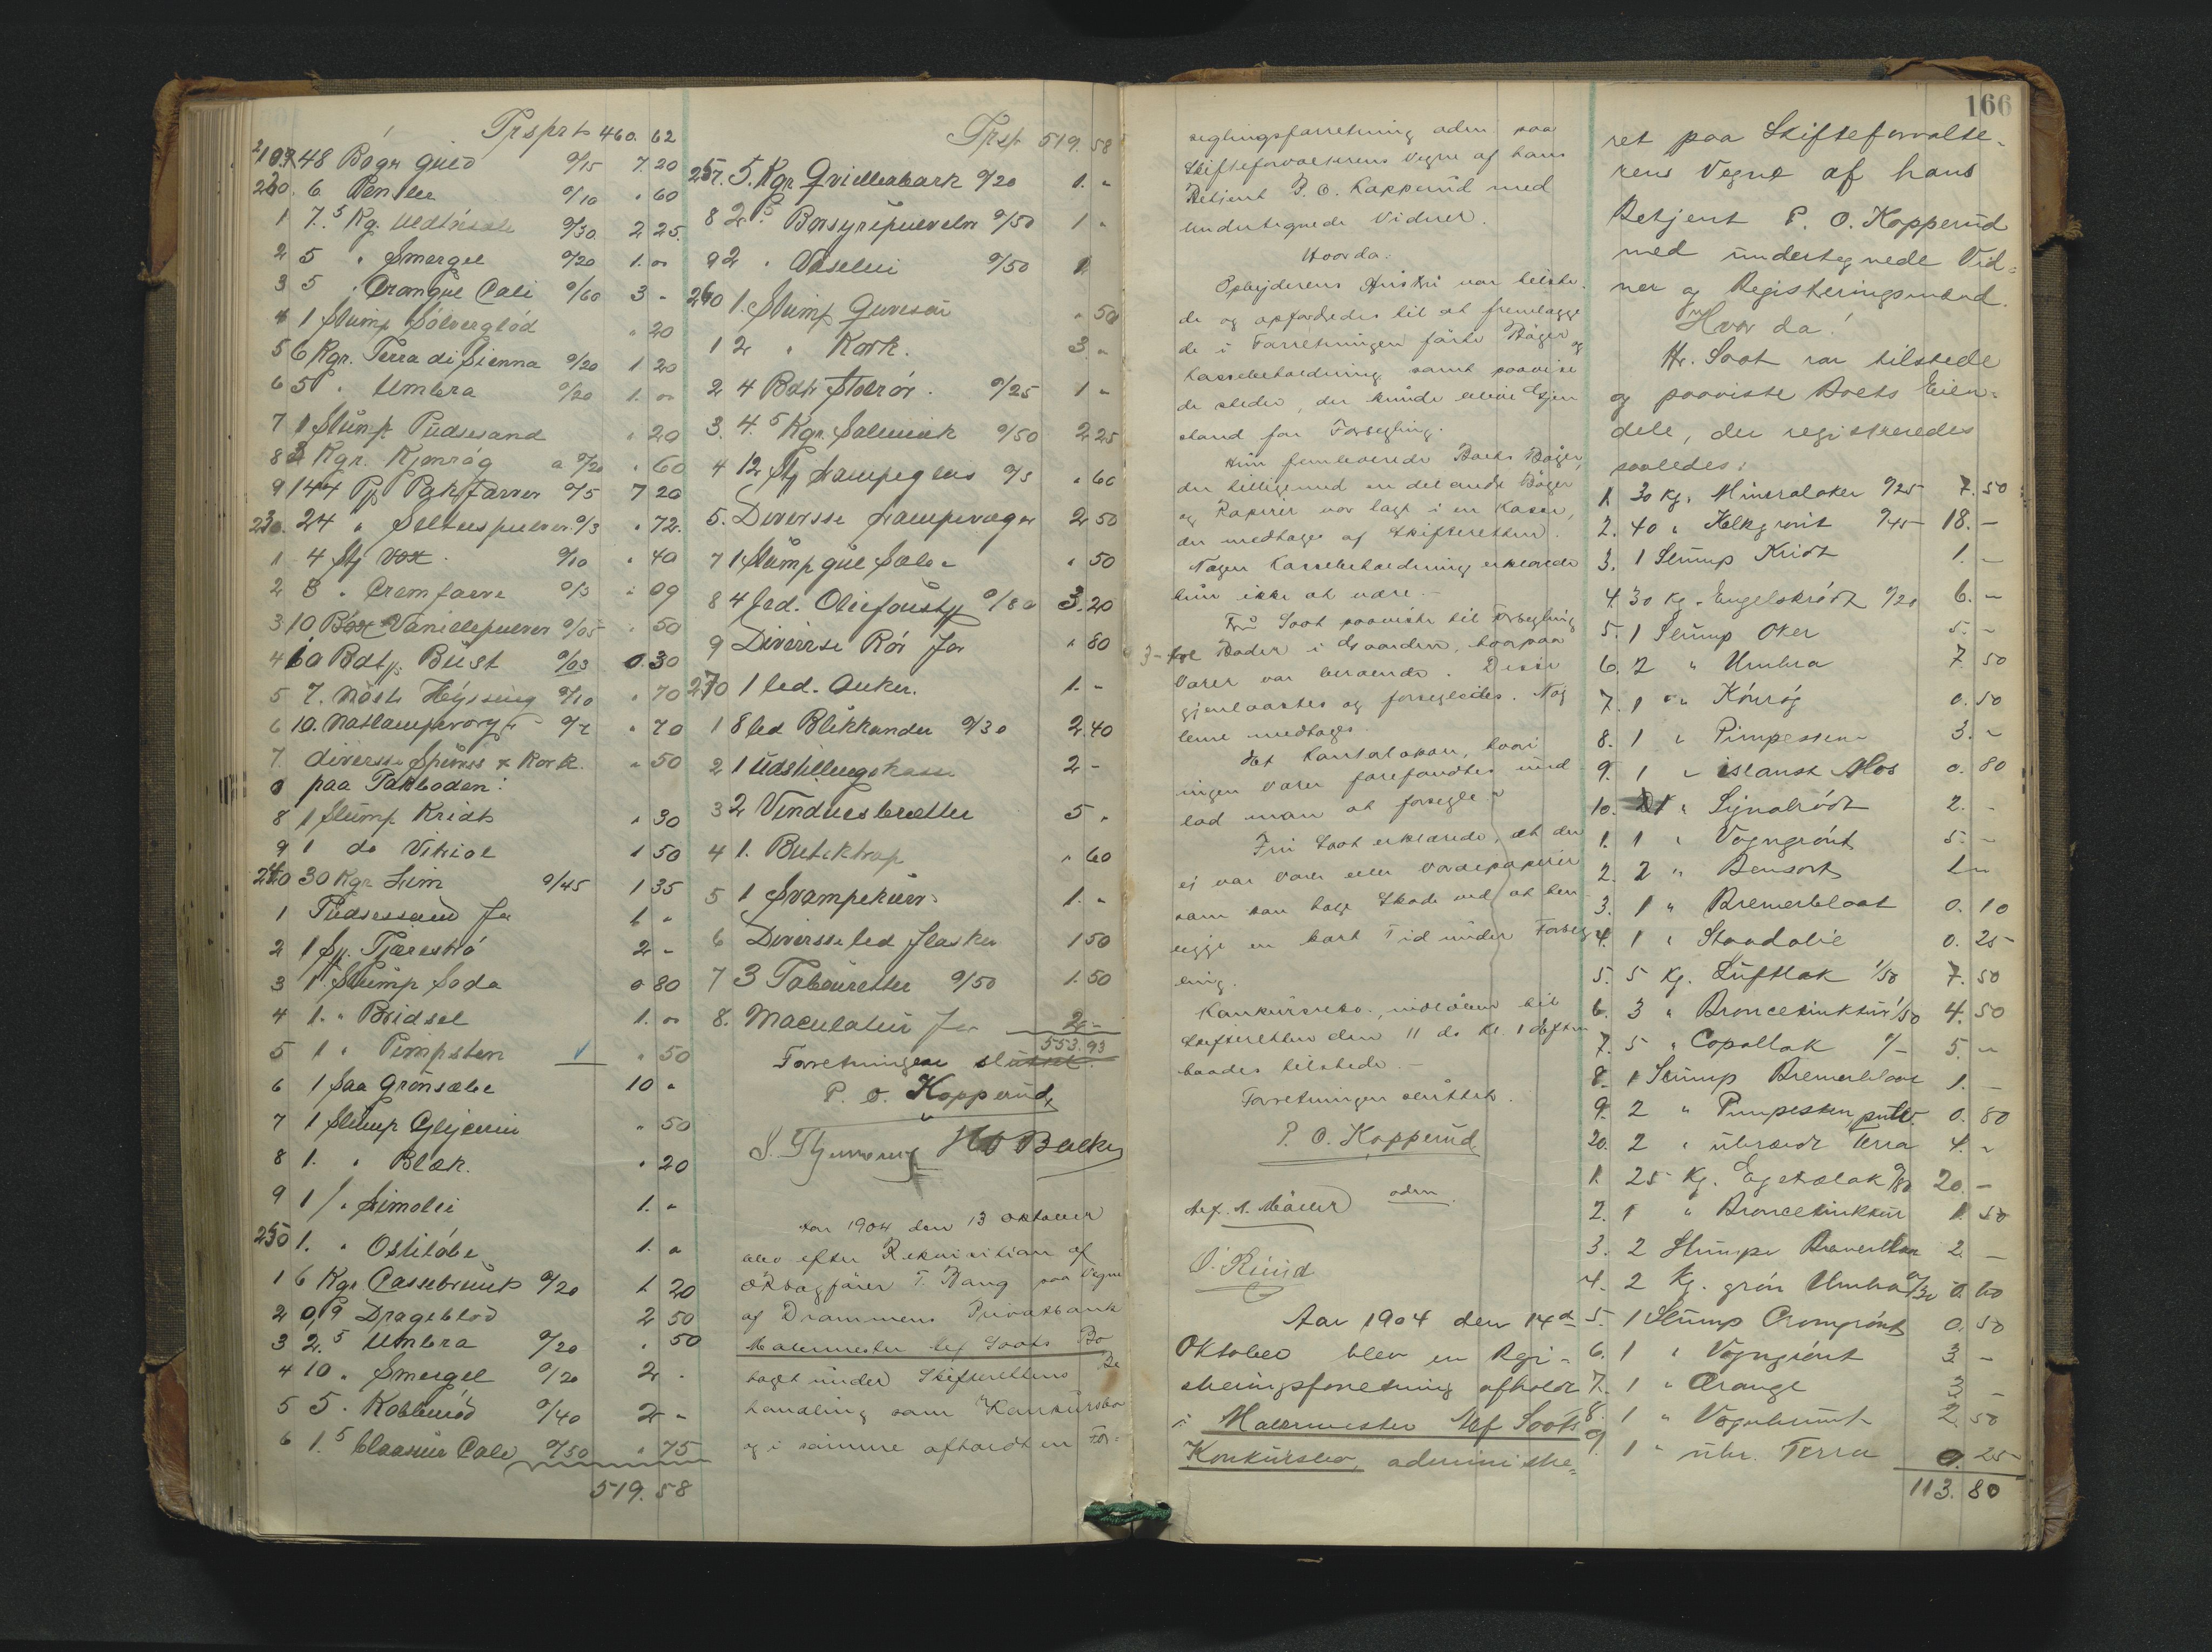 Trsprt 460. 62
219. 48 Bøger Guld 0/15 7 20
220. 6 Pensler 0/10 " 60
1 7.5 Kg. 0/30 2 25.
2 5 " Smergel 0/20 1. "
3 5 " Orangul Cali 0/60 3 -
4 1 Slump Sølverglød " 20
5 6 Kgr. Terra di Sienna 0/20 1 20
6 5 " Umbra 0/20 1. "
7 1 Slump Pudsesand " 20
8 3 Kgr. Kjønrøg a 0/20 " 60
9 144 Pk Pakfarver 0/5 7 20
230. 24 " 0/3 " 72.
1 4 Stj Vox. 0/10 " 40
2 3 " Cremfarve 0/3 " 09
3 10 Vanillepulver 0/05 " 50
4 10 Bdtj. Bust 0/03 0. 30
5 7. Nøste Hyssing 0/10 " 70
6 10. Natlampevæger 0/7 " 70
7. diverse Spunss & Kork. " 50
paa Pakboden:
8 1 Slump Kridt " 30
9 1 do Vitriol 1 50
240 30 Kgr Lim 0/45 1 35
1 Pudsesand 1 "
2 1 Tjæreskø 2 -
3 1 Slump Soda 0 80
4 1. " Bridsel 1. "
5 1 " Pimpsten " 50
6 1 Saa Grønsæbe 10 "
7 1 Slump Glycerin " 50
8 1. " Blæk. " 20
9 1 " Limolie 1. "
250 1. " Ostiløbe 1. "
1 6 Kgr Casselbrunt 0/20 1 20
2 0,9 Drageblod 2 50
3 2.5 Umbra 0/20 " 50
4 10 " Smergel 0/20 2 -
5 5 " 0/40 2 -
6 1.5 Blaasur Cali 0/50 " 75
519. 58
Trsp. 519. 58
257. 5. Kgr. Qvillerbark 0/20 1. "
8 2.5 Borsyrepulver 0/50 1 "
9 2 " Vaselin 0/50 1
260 1. Slump " 50
1 2 " Kork. 3. "
2 4 Bdt. Stolrør. 0/25 1 -
3. 4.5 Kgr. Salmiak 0/50 2 25
4 12 Stj Lampeglas 0/5 " 60
5. Diverse Lampevæger 2 50
7 1 Slump gul Sæbe " 50
8 4 Oliefaustj 0/80 3. 20
9 Diverse Rør for " 80
270 1 led. Anker. 1. -
1 8 led Blikkander 0/30 2. 40
2 1 Udstillingskasse 2 -
3 2 Vinduesbretter 5 "
4 1. Butiktrap " 60
5 1 Svampekurv 1. "
6 Diverse led Flasker 1 50
7 3 Tabouretter 0/50 1. 50
8. Maculatur for 2 -
553. 93
Forretningen sluttet.
P. O. Kopperud
Aar 1904 den 13 Oktober
blev efter Rekvisition af
T. Bang paa Vegne
af Drammens Privatbank
Malermester Alf Soots Bo
taget under Skifterettens Be
handling som Konkursbo
og i samme afholdt en For-
seglingsforretning adm paa
Skifteforvalterens Vegne af hans
Betjent P. O. Kopperud med
undertegnede Vidner.
Hvorda:
Opbyderens Hustru var tilste-
de og opfordredes til at fremlægge
de i Forretningen førte Bøger og
Kassebeholdning samt paavise
de steder, der kunde blive Gjen
stand for Forsegling.
Hun fremleverede Boets Bøger,
der tilligemed en del andre Bøger
og Papirer var lagt i en Kasse,
der medtages af Skifteretten.
Nogen Kassebeholdning erklærede
hun ikke at være.-
Fru Soot paaviste til Forsegling
3- Boder i Gaarden, hvorpaa
Varer var beroende. Disse
gjenlaastes og forsegledes. Nøg
lerne medtages.
Et Kontolokale, hvori
ingen Varer forefandtes und
lod man at forsegle.
Fru Soot erklærede, at der
ei var Varer eller Værdipapirer
som kan tage Skade ved at hen
ligge en kort Tid under Forseg
ling.
Konkursskb. indkalder til
Skifteretten den 11 ds Kl. 1 Aften
baades tilstede.-
Forretningen sluttet.
P. O. Kopperud
adm.
O. Ruud
Aar 1904 den 14de
Oktober blev en Regi-
streringsforretning afholdt
i Malermester Alf Soots
Konkursbo, administre-
166
ret paa Skifteforvalte-
rens Vegne af hans
Betjent P. O. Kopperud
med undertegnede Vid-
ner og Registreringsmænd.
Hvor da!
Hr. Soot var tilstede
og paaviste Boets Eien-
dele, der registreredes
saaledes:
1. 30 kg. Mineraloker 0/25 7. 50
2. 40 " Kalkgrønt 0/45 18. -
3. 1 Slump Kridt 1. -
4. 30 Kg. Engelskrødt 0/20 6. -
5. 1 Slump Oker 5. -
6. 2 " Umbra 7. 50
7. 1 " Kønrøg 0. 50
8. 1 " Pimpesten 3. -
9. 1 " islansk Mos 0. 80
10. 1 " Signalrødt 2. -
1. 1 " Vogngrønt 5. -
2. 2 " Bensort 1 -
3. 1 " Bremerblaat 0. 10
4. 1 " Standolie 0. 25
5. 5 Kg. Luftlak 1/50 7. 50
6. 3 " Broncetinktur 1/50 4. 50
7. 5 " Copallak 1/- 5. -
8. 1 Slump Bremerblaat 1. -
9. 2 " Pimpesten, pulv. 0. 80
20. 2 " ubrændt Terra 4. -
1. 25 Kg. Egetrælak 0/80 20. -
2. 1 " Broncetinktur 1. 50
3. 2 Slumpe 2 -
4. 2 Kg. grøn Umbra 0/30 0. 60
5. 1 Slump Cromgrønt 0. 50
6. 1 " Vogngrønt 3 -
7. 1 " Orange 3 -
8. 1 " Vognbrunt 2. 50
9. 1 " ubr. Terra 0. 25
113. 80